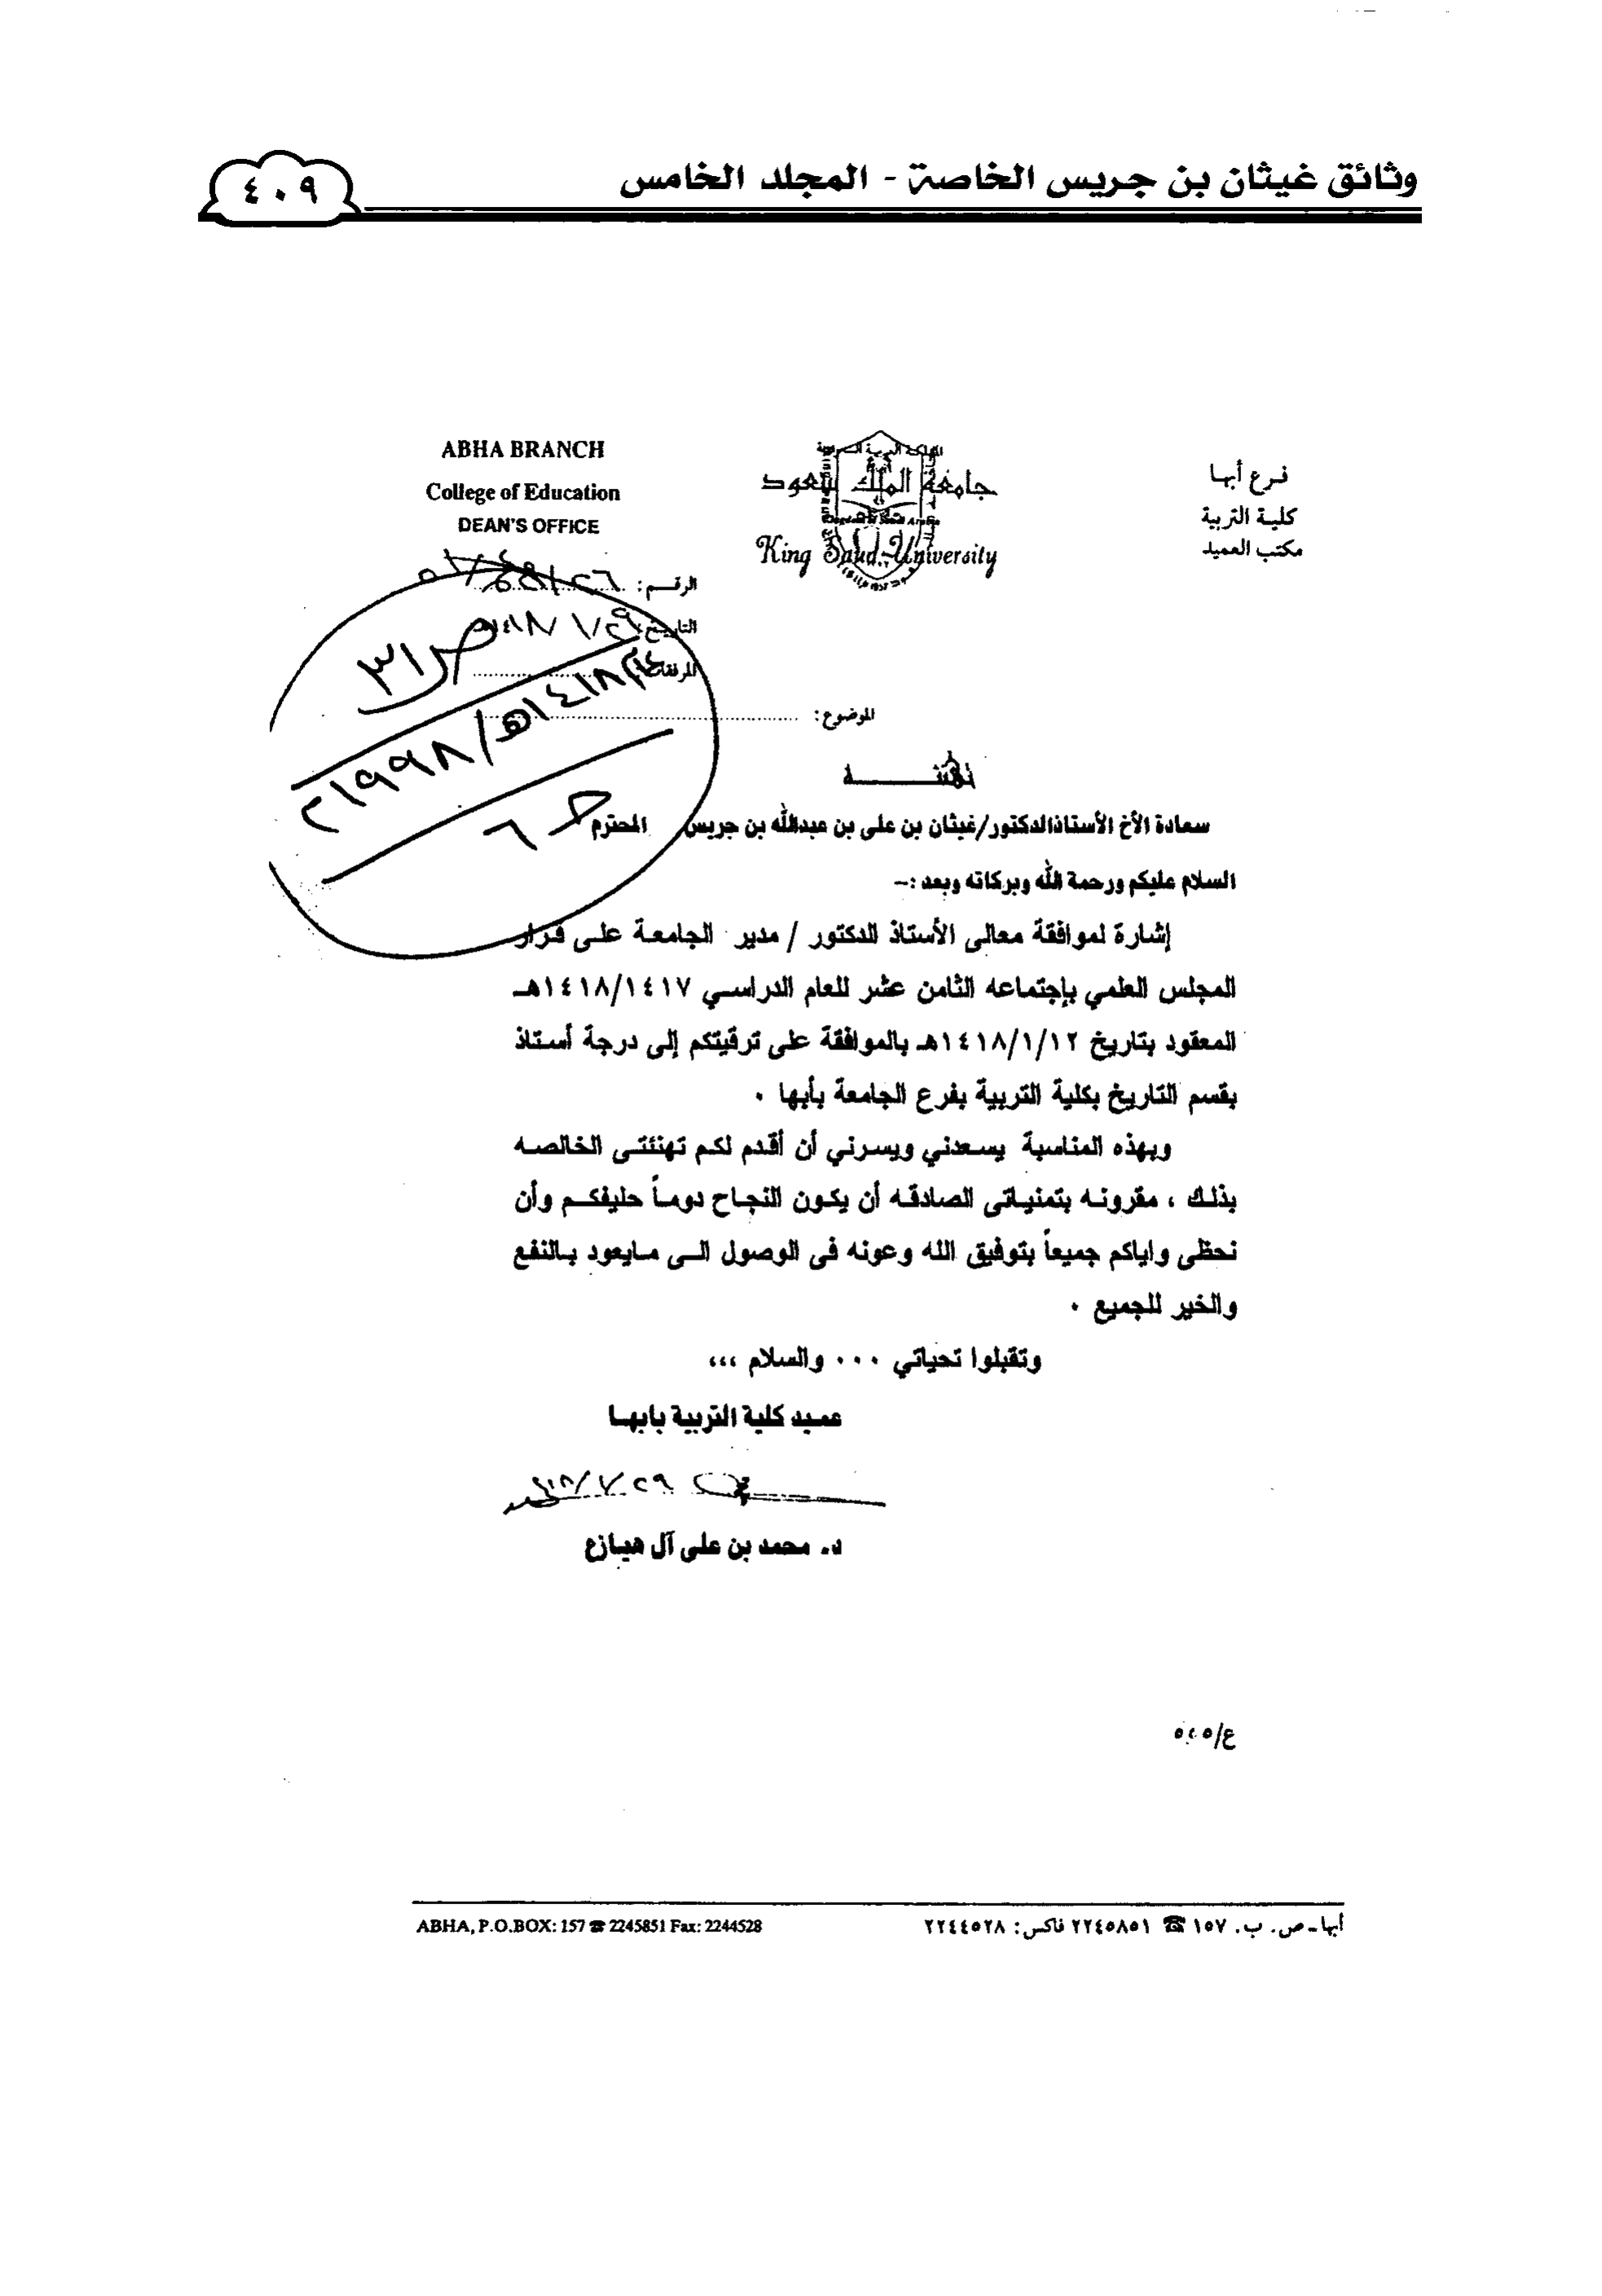 وثائق غيثان بن جريس الخاصة - المجلد الخامس
٤٠٩
فرع أبها
كلية التربية
مكتب العميد
جامعة الملك سعود
King Saud University
ABHA BRANCH
College of Education
DEAN'S OFFICE
الرقم:
التاريخ:
المرفقات:
الموضوع:
ص ٣١
١٤١٨هـ/١٩٩٨م
ح ٦
تهنئـــــة
سعادة الأخ الأستاذالدكتور/غيثان بن على بن عبدالله بن جريس المحترم
السلام عليكم ورحمة الله وبركاته وبعد :-
إشارة لموافقة معالى الأستاذ الدكتور / مدير الجامعة على قرار
المجلس العلمي بإجتماعه الثامن عشر للعام الدراسي ١٤١٨/١٤١٧هـ
المعقود بتاريخ ١٤١٨/١/١٢هـ بالموافقة على ترقيتكم إلى درجة أستاذ
بقسم التاريخ بكلية التربية بفرع الجامعة بأبها .
وبهذه المناسبة يسعدني ويسرني أن أقدم لكم تهنئتى الخالصه
بذلك ، مقرونه بتمنياتى الصادقه أن يكون النجاح دوماً حليفكم وأن
نحظى واياكم جميعاً بتوفيق الله وعونه فى الوصول الى مايعود بالنفع
والخير للجميع .
وتقبلوا تحياتي ... والسلام ،،،
عميد كلية التربية بابها
د. محمد بن على آل هيازع
أبها - ص. ب. ١٥٧ ☎ ٢٢٤٥٨٥١ فاكس: ٢٢٤٤٥٢٨
ABHA, P.O.BOX: 157 ☎ 2245851 Fax: 2244528